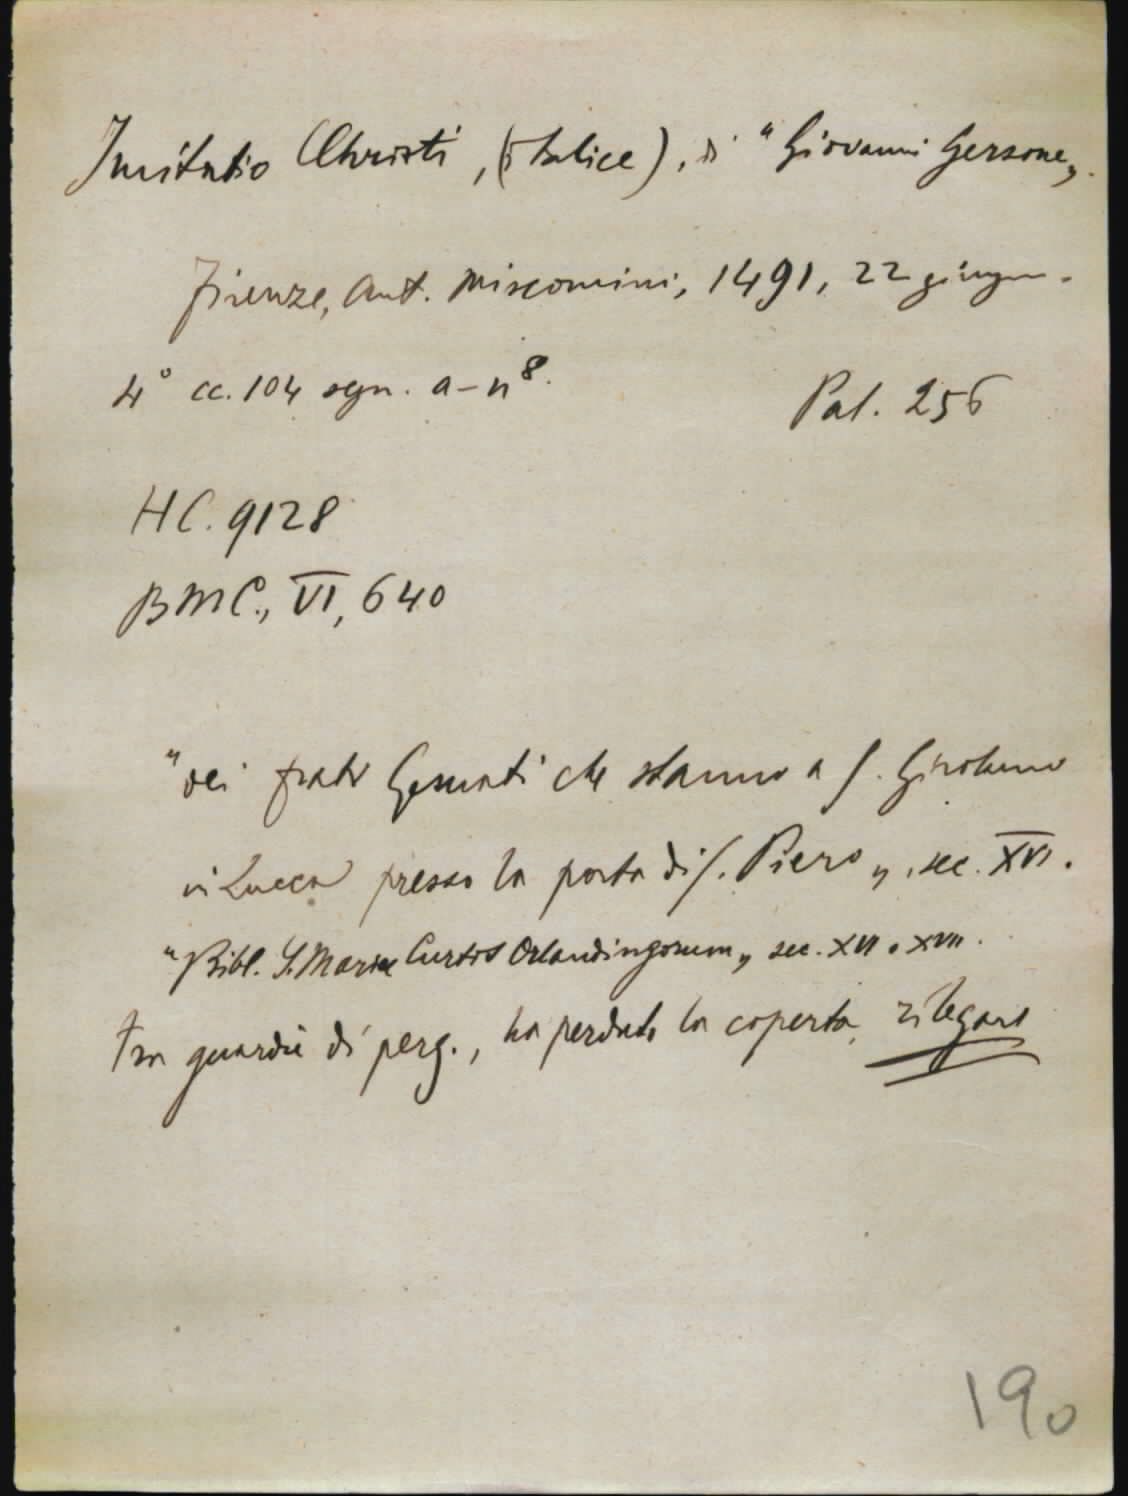 Imitatio Christi, (italice), di "Giovanni Gersone„.
Firenze, Ant. Miscomini, 1491, 22 giugno.
4° cc. 104 segn. a-n⁸.
Pal. 256
HC. 9128
BMC., VI, 640
"dei frati Gesuati che stanno a S. Girolamo
in Lucca presso la porta di S. Piero„, sec. XVI.
"Bibl. S. Mariae Curtis Orlandingorum„ sec. XVI o XVII.
Tra guardie di perg., ha perduto la coperta, rilegare
190